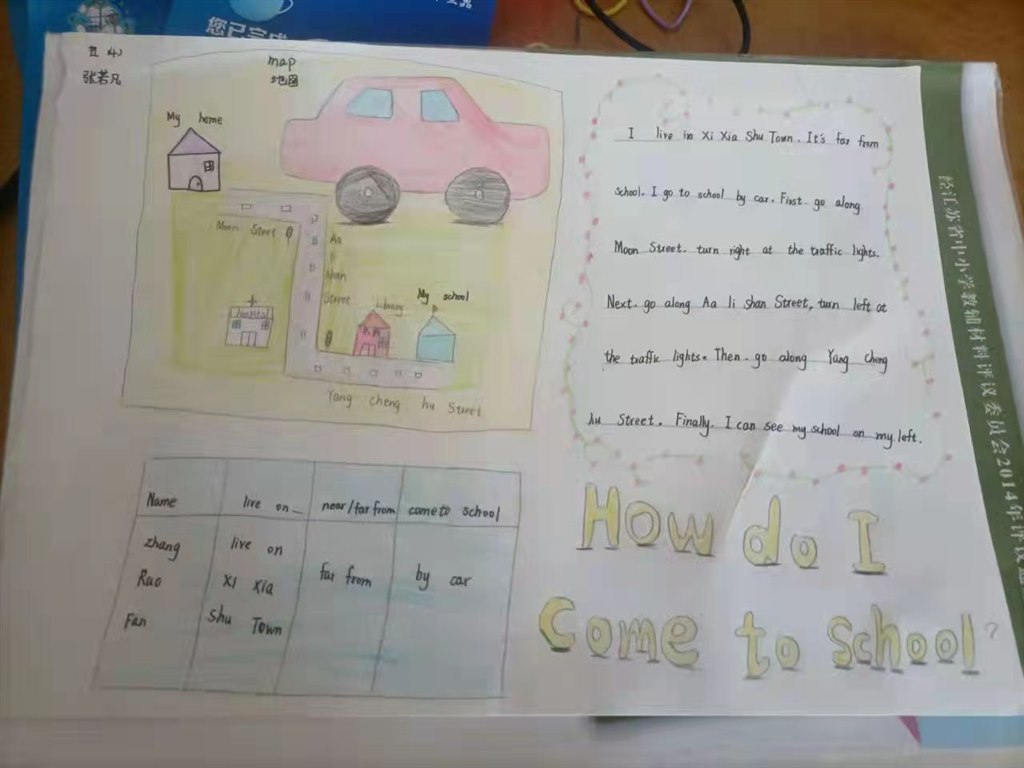 您已完成
五(4)
张若凡
map
地图
My home
Moon Street
Aa
li
shan
Street
hospital
Library
My school
Yang cheng hu Street
I live in Xi Xia Shu Town. It's far from
school. I go to school by car. First. go along
Moon Street. turn right at the traffic lights.
Next. go along Aa li shan Street, turn left at
the traffic lights. Then. go along Yang cheng
hu Street. Finally. I can see my school on my left.
Name live on_ near/far from come to school
zhang live on
Ruo Xi Xia far from by car
Fan Shu Town
How do I
Come to School?
经江苏省中小学教辅材料评议委员会2014年评议通